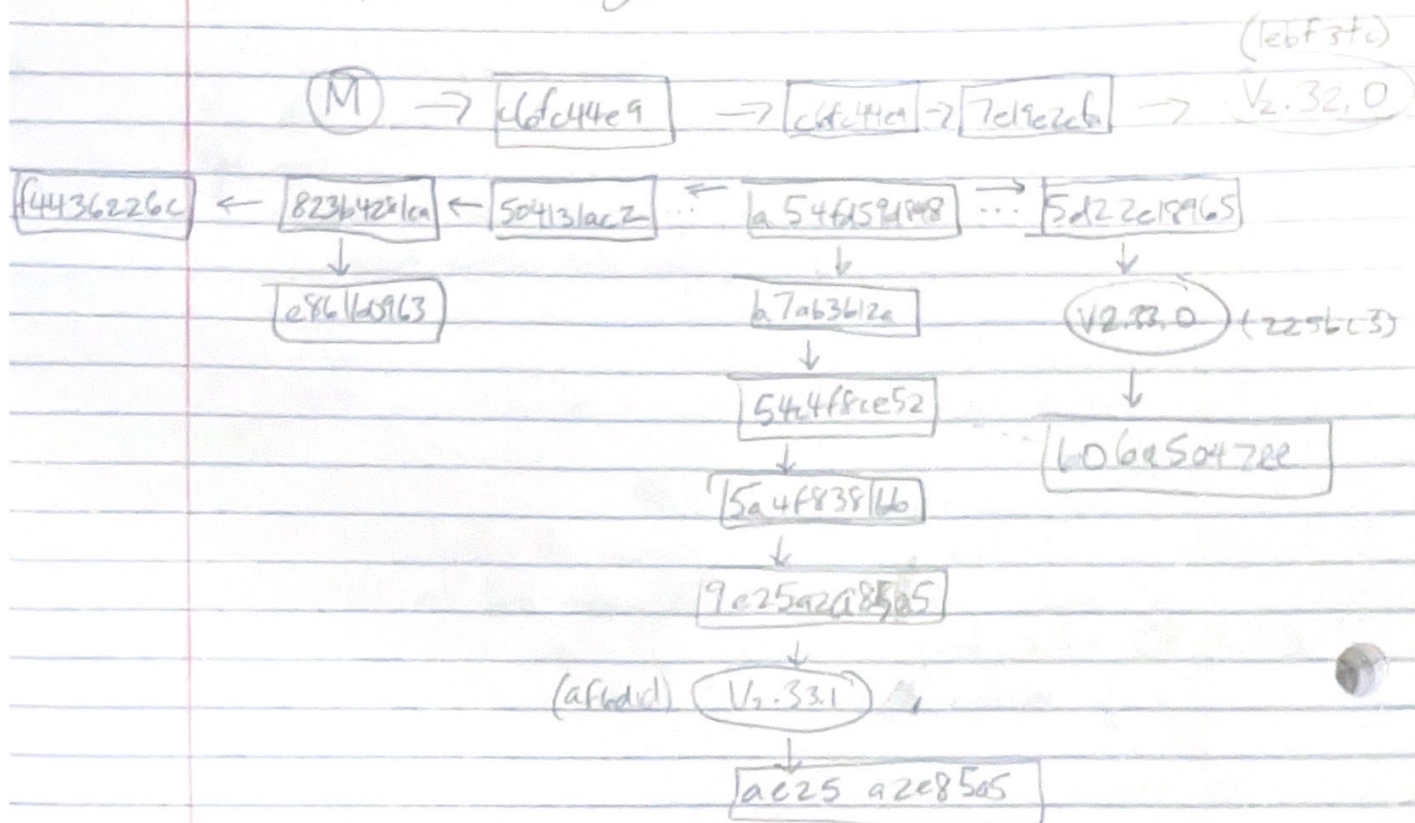 (1ebf3fc)
M → c6fc44e9 → c6fc44e9 → 7e19e2c6a → V2.32.0
f4436226c ← 823b4281ca ← 504131ac2 ... ← a54fd59d848 → ... 5d22c18965
↓ ↓ ↓
e8611b0963 b7ab3b12a V2.33.0 (225bc3)
↓ ↓
54c4f8ce52
b06a50472ee
↓
5a4f8381bb
↓
9e25a2a85a5
↓
(af6d1d) V2.33.1
↓
ae25 a2e85a5